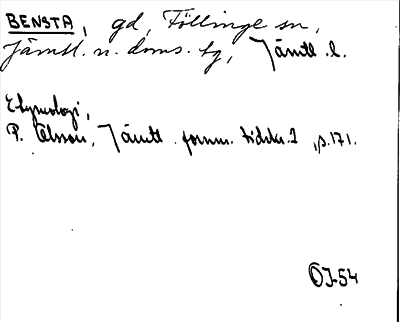 BENSTA, gd, Föllinge sn,
Jämtl. n. doms. tg, Jämtl. l.
Etymologi,
P. Olsson, Jämtl. fornm. tidskr. 2, s. 171.
OJ-54